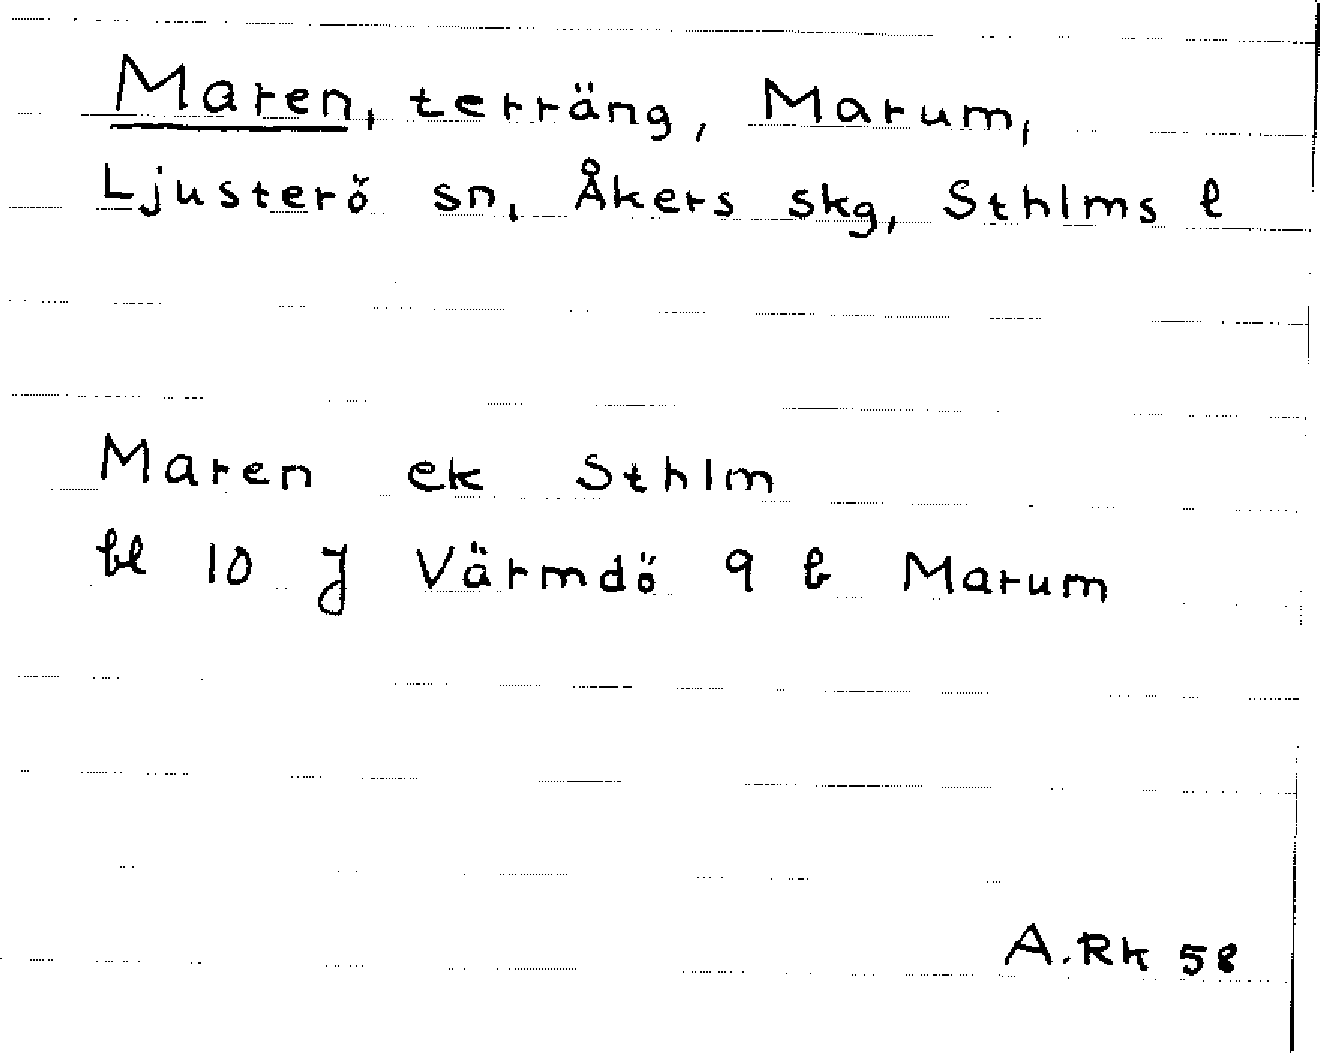 Maren, terräng, Marum,
Ljusterö sn, Åkers skg, Sthlms l
Maren ek Sthlm
bl 10 J Värmdö 9 b Marum
A.Rk 58